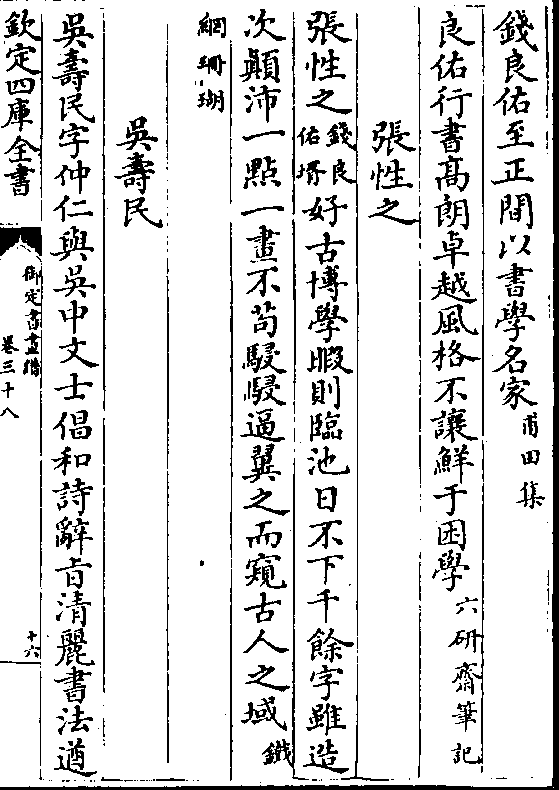 錢良佑至正間以書學名家甫田集
良佑行書髙朗卓越風格不讓鮮于困學六研齋筆記
張性之
張性之錢良佑壻好古博學暇則臨池日不下千餘字雖造
次顛沛一點一畫不茍駸駸逼翼之而窺古人之域鐵
網珊瑚
吳壽民
吳壽民字仲仁與吳中文士倡和詩辭㫖清麗書法遒
欽定四庫全書
御定書畫譜
卷三十八
十六